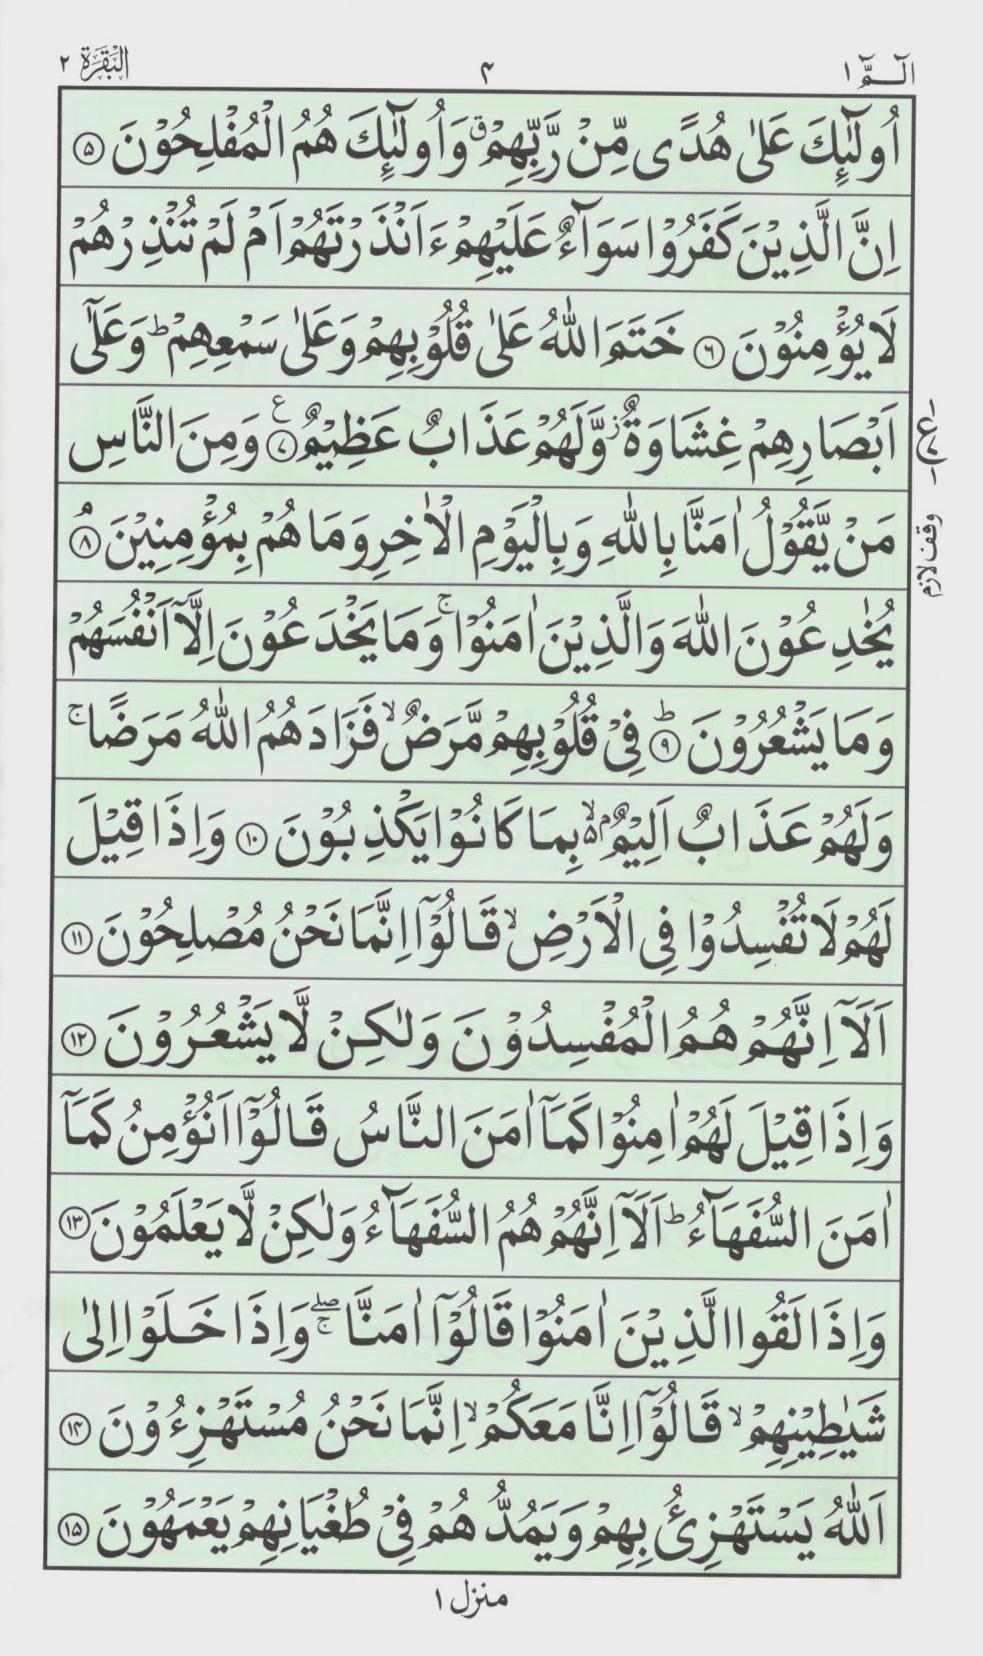 الٓـمّٓ ١
٤
البقرة ٢
اُولٰٓئِكَ عَلٰى هُدًى مِّنْ رَّبِّهِمْ ۗ وَاُولٰٓئِكَ هُمُ الْمُفْلِحُوْنَ ۝٥
اِنَّ الَّذِيْنَ كَفَرُوْا سَوَآءٌ عَلَيْهِمْ ءَاَنْذَرْتَهُمْ اَمْ لَمْ تُنْذِرْهُمْ
لَا يُؤْمِنُوْنَ ۝٦ خَتَمَ اللّٰهُ عَلٰى قُلُوْبِهِمْ وَعَلٰى سَمْعِهِمْ ؕ وَعَلٰٓى
اَبْصَارِهِمْ غِشَاوَةٌ ز وَّلَهُمْ عَذَابٌ عَظِيْمٌ ۝٧ ع وَمِنَ النَّاسِ
مَنْ يَّقُوْلُ اٰمَنَّا بِاللّٰهِ وَبِالْيَوْمِ الْاٰخِرِ وَمَا هُمْ بِمُؤْمِنِيْنَ ۘ ۝٨
يُخٰدِعُوْنَ اللّٰهَ وَالَّذِيْنَ اٰمَنُوْا ۚ وَمَا يَخْدَعُوْنَ اِلَّآ اَنْفُسَهُمْ
وَمَا يَشْعُرُوْنَ ؕ ۝٩ فِيْ قُلُوْبِهِمْ مَّرَضٌ ۙ فَزَادَهُمُ اللّٰهُ مَرَضًا ۚ
وَلَهُمْ عَذَابٌ اَلِيْمٌ ۢ ۙ۵ بِمَا كَانُوْا يَكْذِبُوْنَ ۝١٠ وَاِذَا قِيْلَ
لَهُمْ لَا تُفْسِدُوْا فِى الْاَرْضِ ۙ قَالُوْٓا اِنَّمَا نَحْنُ مُصْلِحُوْنَ ۝١١
اَلَآ اِنَّهُمْ هُمُ الْمُفْسِدُوْنَ وَلٰكِنْ لَّا يَشْعُرُوْنَ ۝١٢
وَاِذَا قِيْلَ لَهُمْ اٰمِنُوْا كَمَآ اٰمَنَ النَّاسُ قَالُوْٓا اَنُؤْمِنُ كَمَآ
اٰمَنَ السُّفَهَآءُ ؕ اَلَآ اِنَّهُمْ هُمُ السُّفَهَآءُ وَلٰكِنْ لَّا يَعْلَمُوْنَ ۝١٣
وَاِذَا لَقُوا الَّذِيْنَ اٰمَنُوْا قَالُوْٓا اٰمَنَّا ۖۚ وَاِذَا خَلَوْا اِلٰى
شَيٰطِيْنِهِمْ ۙ قَالُوْٓا اِنَّا مَعَكُمْ ۙ اِنَّمَا نَحْنُ مُسْتَهْزِءُوْنَ ۝١٤
اَللّٰهُ يَسْتَهْزِئُ بِهِمْ وَيَمُدُّهُمْ فِيْ طُغْيَانِهِمْ يَعْمَهُوْنَ ۝١٥
وقف لازم
منزل ١